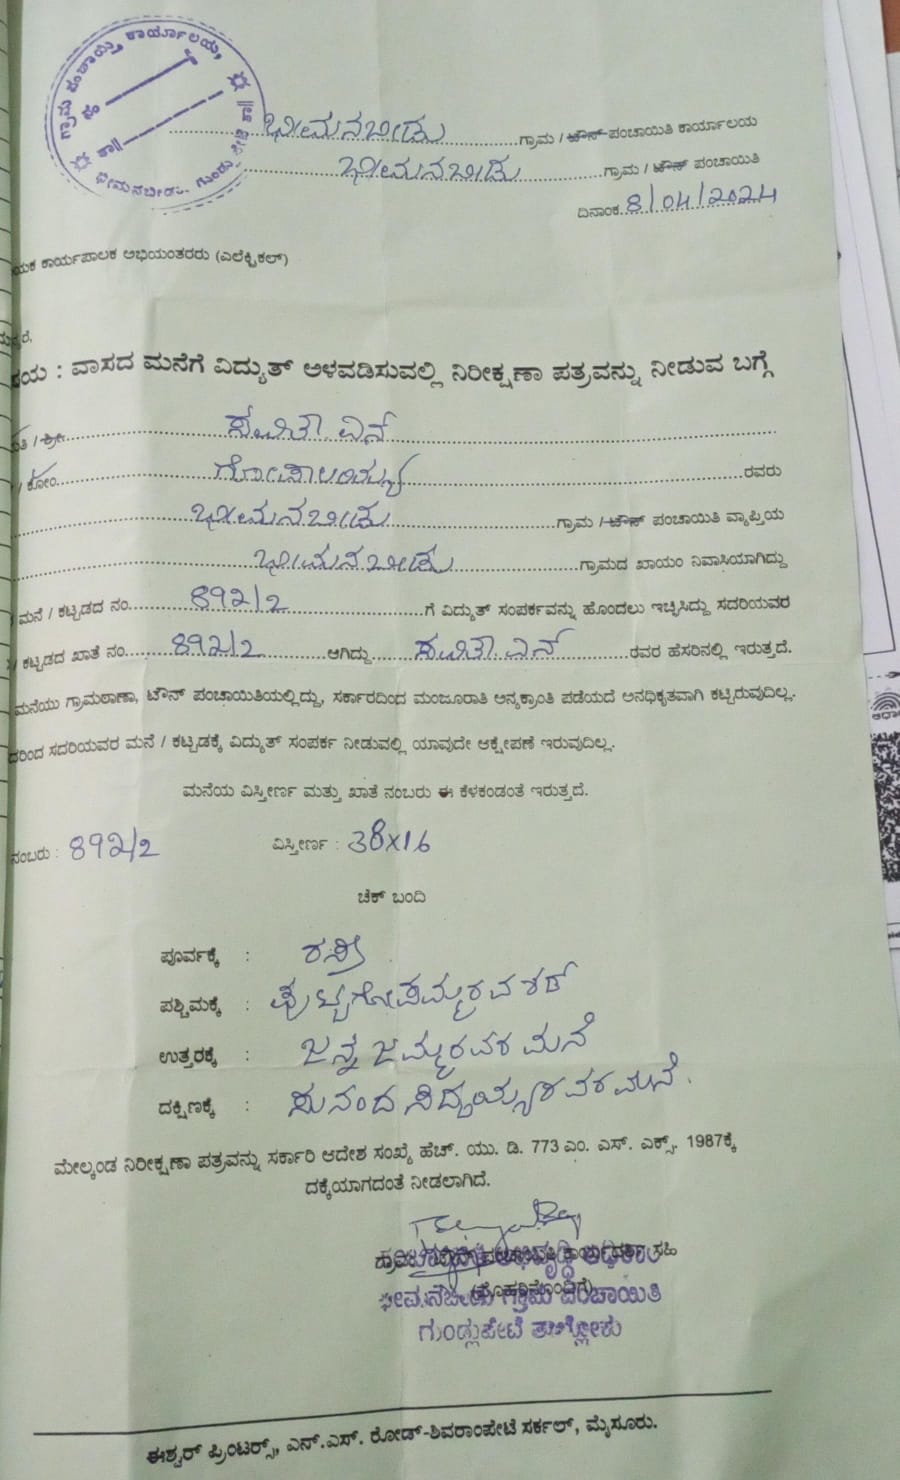 ಗ್ರಾಮ ಪಂಚಾಯ್ತಿ ಕಾರ್ಯಾಲಯ,
ಭೀಮನಬೀಡು ಗ್ರಾಮ / ಟೌನ್ ಪಂಚಾಯಿತಿ ಕಾರ್ಯಾಲಯ
ಭೀಮನಬೀಡು ಗ್ರಾಮ / ಟೌನ್ ಪಂಚಾಯಿತಿ
ದಿನಾಂಕ 8/04/2024
ಯಕ ಕಾರ್ಯಪಾಲಕ ಅಭಿಯಂತರರು (ಎಲೆಕ್ಟ್ರಿಕಲ್)
ಷಯ : ವಾಸದ ಮನೆಗೆ ವಿದ್ಯುತ್ ಅಳವಡಿಸುವಲ್ಲಿ ನಿರೀಕ್ಷಣಾ ಪತ್ರವನ್ನು ನೀಡುವ ಬಗ್ಗೆ
ಮತಿ / ಶ್ರೀ ಸವಿತಾ ಎನ್
/ ಕೋಂ ಗೋಪಾಲಯ್ಯ ರವರು
ಭೀಮನಬೀಡು ಗ್ರಾಮ / ಟೌನ್ ಪಂಚಾಯಿತಿ ವ್ಯಾಪ್ತಿಯ
ಭೀಮನಬೀಡು ಗ್ರಾಮದ ಖಾಯಂ ನಿವಾಸಿಯಾಗಿದ್ದು
ಮನೆ / ಕಟ್ಟಡದ ನಂ. 892/2 ಗೆ ವಿದ್ಯುತ್ ಸಂಪರ್ಕವನ್ನು ಹೊಂದಲು ಇಚ್ಛಿಸಿದ್ದು ಸದರಿಯವರ
/ ಕಟ್ಟಡದ ಖಾತೆ ನಂ. 892/2 ಆಗಿದ್ದು ಸವಿತಾ ಎನ್ ರವರ ಹೆಸರಿನಲ್ಲಿ ಇರುತ್ತದೆ.
ಮನೆಯು ಗ್ರಾಮಠಾಣಾ, ಟೌನ್ ಪಂಚಾಯಿತಿಯಲ್ಲಿದ್ದು, ಸರ್ಕಾರದಿಂದ ಮಂಜೂರಾತಿ ಅನ್ಯಕ್ರಾಂತಿ ಪಡೆಯದೆ ಅನಧಿಕೃತವಾಗಿ ಕಟ್ಟಿರುವುದಿಲ್ಲ.
ದರಿಂದ ಸದರಿಯವರ ಮನೆ / ಕಟ್ಟಡಕ್ಕೆ ವಿದ್ಯುತ್ ಸಂಪರ್ಕ ನೀಡುವಲ್ಲಿ ಯಾವುದೇ ಆಕ್ಷೇಪಣೆ ಇರುವುದಿಲ್ಲ.
ಮನೆಯ ವಿಸ್ತೀರ್ಣ ಮತ್ತು ಖಾತೆ ನಂಬರು ಈ ಕೆಳಕಂಡಂತೆ ಇರುತ್ತದೆ.
ನಂಬರು : 892/2 ವಿಸ್ತೀರ್ಣ : 38x16
ಚೆಕ್ ಬಂದಿ
ಪೂರ್ವಕ್ಕೆ : ರಸ್ತೆ
ಪಶ್ಚಿಮಕ್ಕೆ :
ಉತ್ತರಕ್ಕೆ : ಜನ್ನಜಮ್ಮರವರ ಮನೆ
ದಕ್ಷಿಣಕ್ಕೆ : ಸುನಂದ ಸಿದ್ದಯ್ಯರವರ ಮನೆ.
ಮೇಲ್ಕಂಡ ನಿರೀಕ್ಷಣಾ ಪತ್ರವನ್ನು ಸರ್ಕಾರಿ ಆದೇಶ ಸಂಖ್ಯೆ ಹೆಚ್. ಯು. ಡಿ. 773 ಎಂ. ಎಸ್. ಎಕ್ಸ್. 1987ಕ್ಕೆ
ದಕ್ಕೆಯಾಗದಂತೆ ನೀಡಲಾಗಿದೆ.
ಸಹಿ
(ಮೊಹರಿನೊಂದಿಗೆ)
ಭೀಮನಬೀಡು ಗ್ರಾಮ ಪಂಚಾಯಿತಿ
ಗುಂಡ್ಲುಪೇಟೆ ತಾಲ್ಲೋಕು
ಈಶ್ವರ್ ಪ್ರಿಂಟರ್ಸ್, ಎನ್.ಎಸ್. ರೋಡ್-ಶಿವರಾಂಪೇಟೆ ಸರ್ಕಲ್, ಮೈಸೂರು.